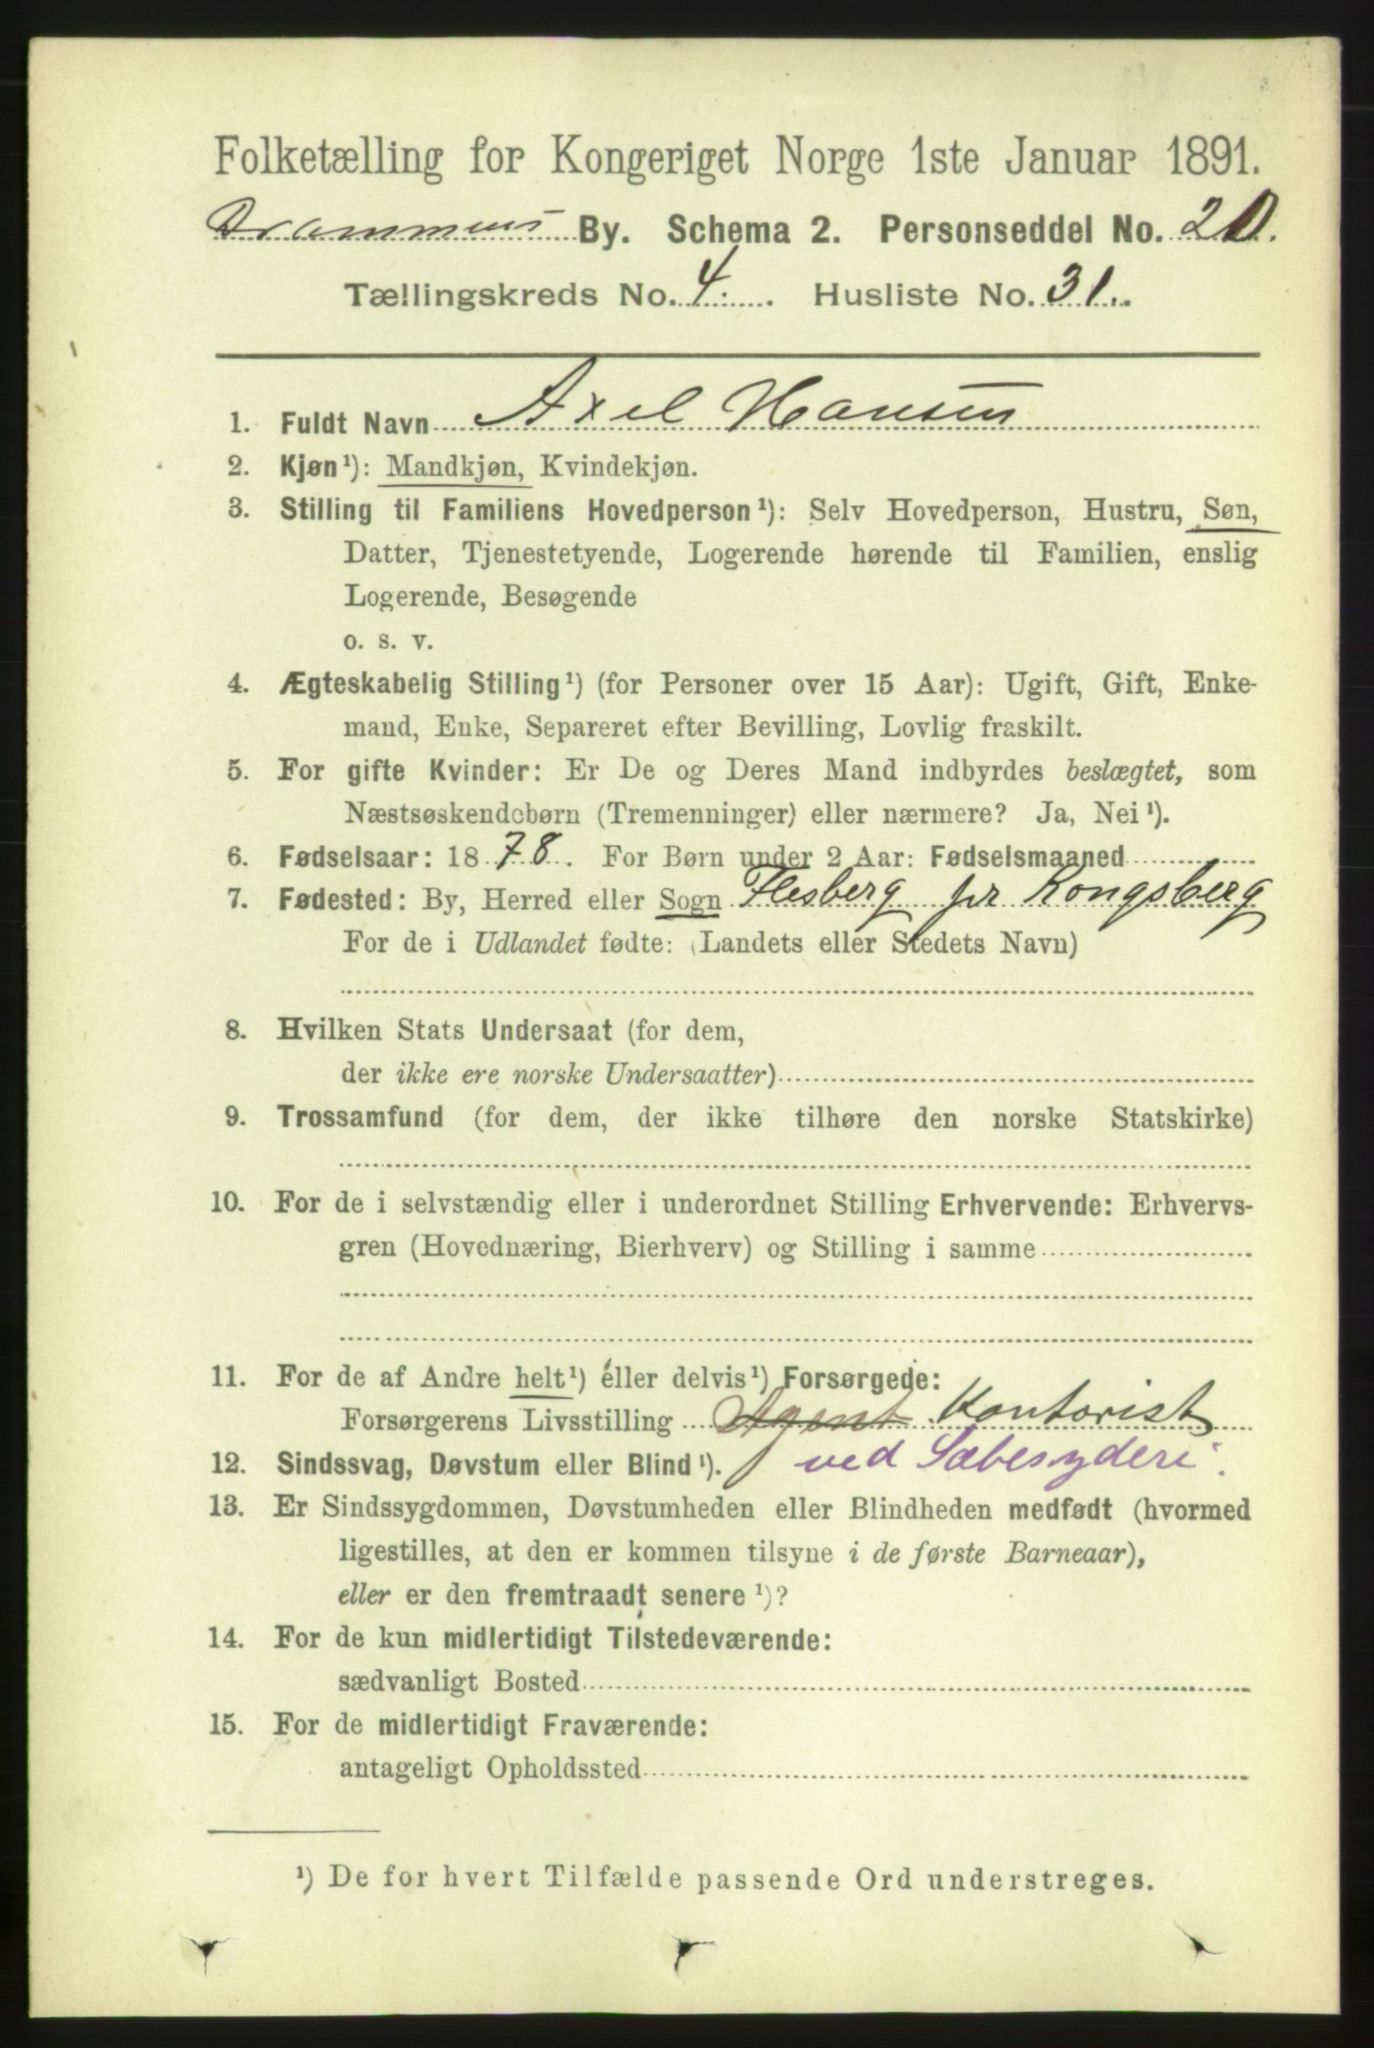 Folketælling for Kongeriget Norge 1ste Januar 1891.
Drammens By. Schema 2. Personseddel No. 20.
Tællingskreds No. 4. Husliste No. 31.
1. Fuldt Navn Axel Hansen
2. Kjøn¹): Mandkjøn, Kvindekjøn.
3. Stilling til Familiens Hovedperson¹): Selv Hovedperson, Hustru, Søn,
Datter, Tjenestetyende, Logerende hørende til Familien, enslig
Logerende, Besøgende
o. s. v.
4. Ægteskabelig Stilling¹) (for Personer over 15 Aar): Ugift, Gift, Enke-
mand, Enke, Separeret efter Bevilling, Lovlig fraskilt.
5. For gifte Kvinder: Er De og Deres Mand indbyrdes beslægtet, som
Næstsøskendebørn (Tremenninger) eller nærmere? Ja, Nei¹).
6. Fødselsaar: 1878. For Børn under 2 Aar: Fødselsmaaned
7. Fødested: By, Herred eller Sogn Flesberg pr Kongsberg
For de i Udlandet fødte: (Landets eller Stedets Navn)
8. Hvilken Stats Undersaat (for dem,
der ikke ere norske Undersaatter)
9. Trossamfund (for dem, der ikke tilhøre den norske Statskirke)
10. For de i selvstændig eller i underordnet Stilling Erhvervende: Erhvervs-
gren (Hovednæring, Bierhverv) og Stilling i samme
11. For de af Andre helt¹) eller delvis¹) Forsørgede:
Forsørgerens Livsstilling Agent Kontorist
12. Sindssvag, Døvstum eller Blind¹). ved Sæbesyderi.
13. Er Sindssygdommen, Døvstumheden eller Blindheden medfødt (hvormed
ligestilles, at den er kommen tilsyne i de første Barneaar),
eller er den fremtraadt senere¹)?
14. For de kun midlertidigt Tilstedeværende:
sædvanligt Bosted
15. For de midlertidigt Fraværende:
antageligt Opholdssted
¹) De for hvert Tilfælde passende Ord understreges.